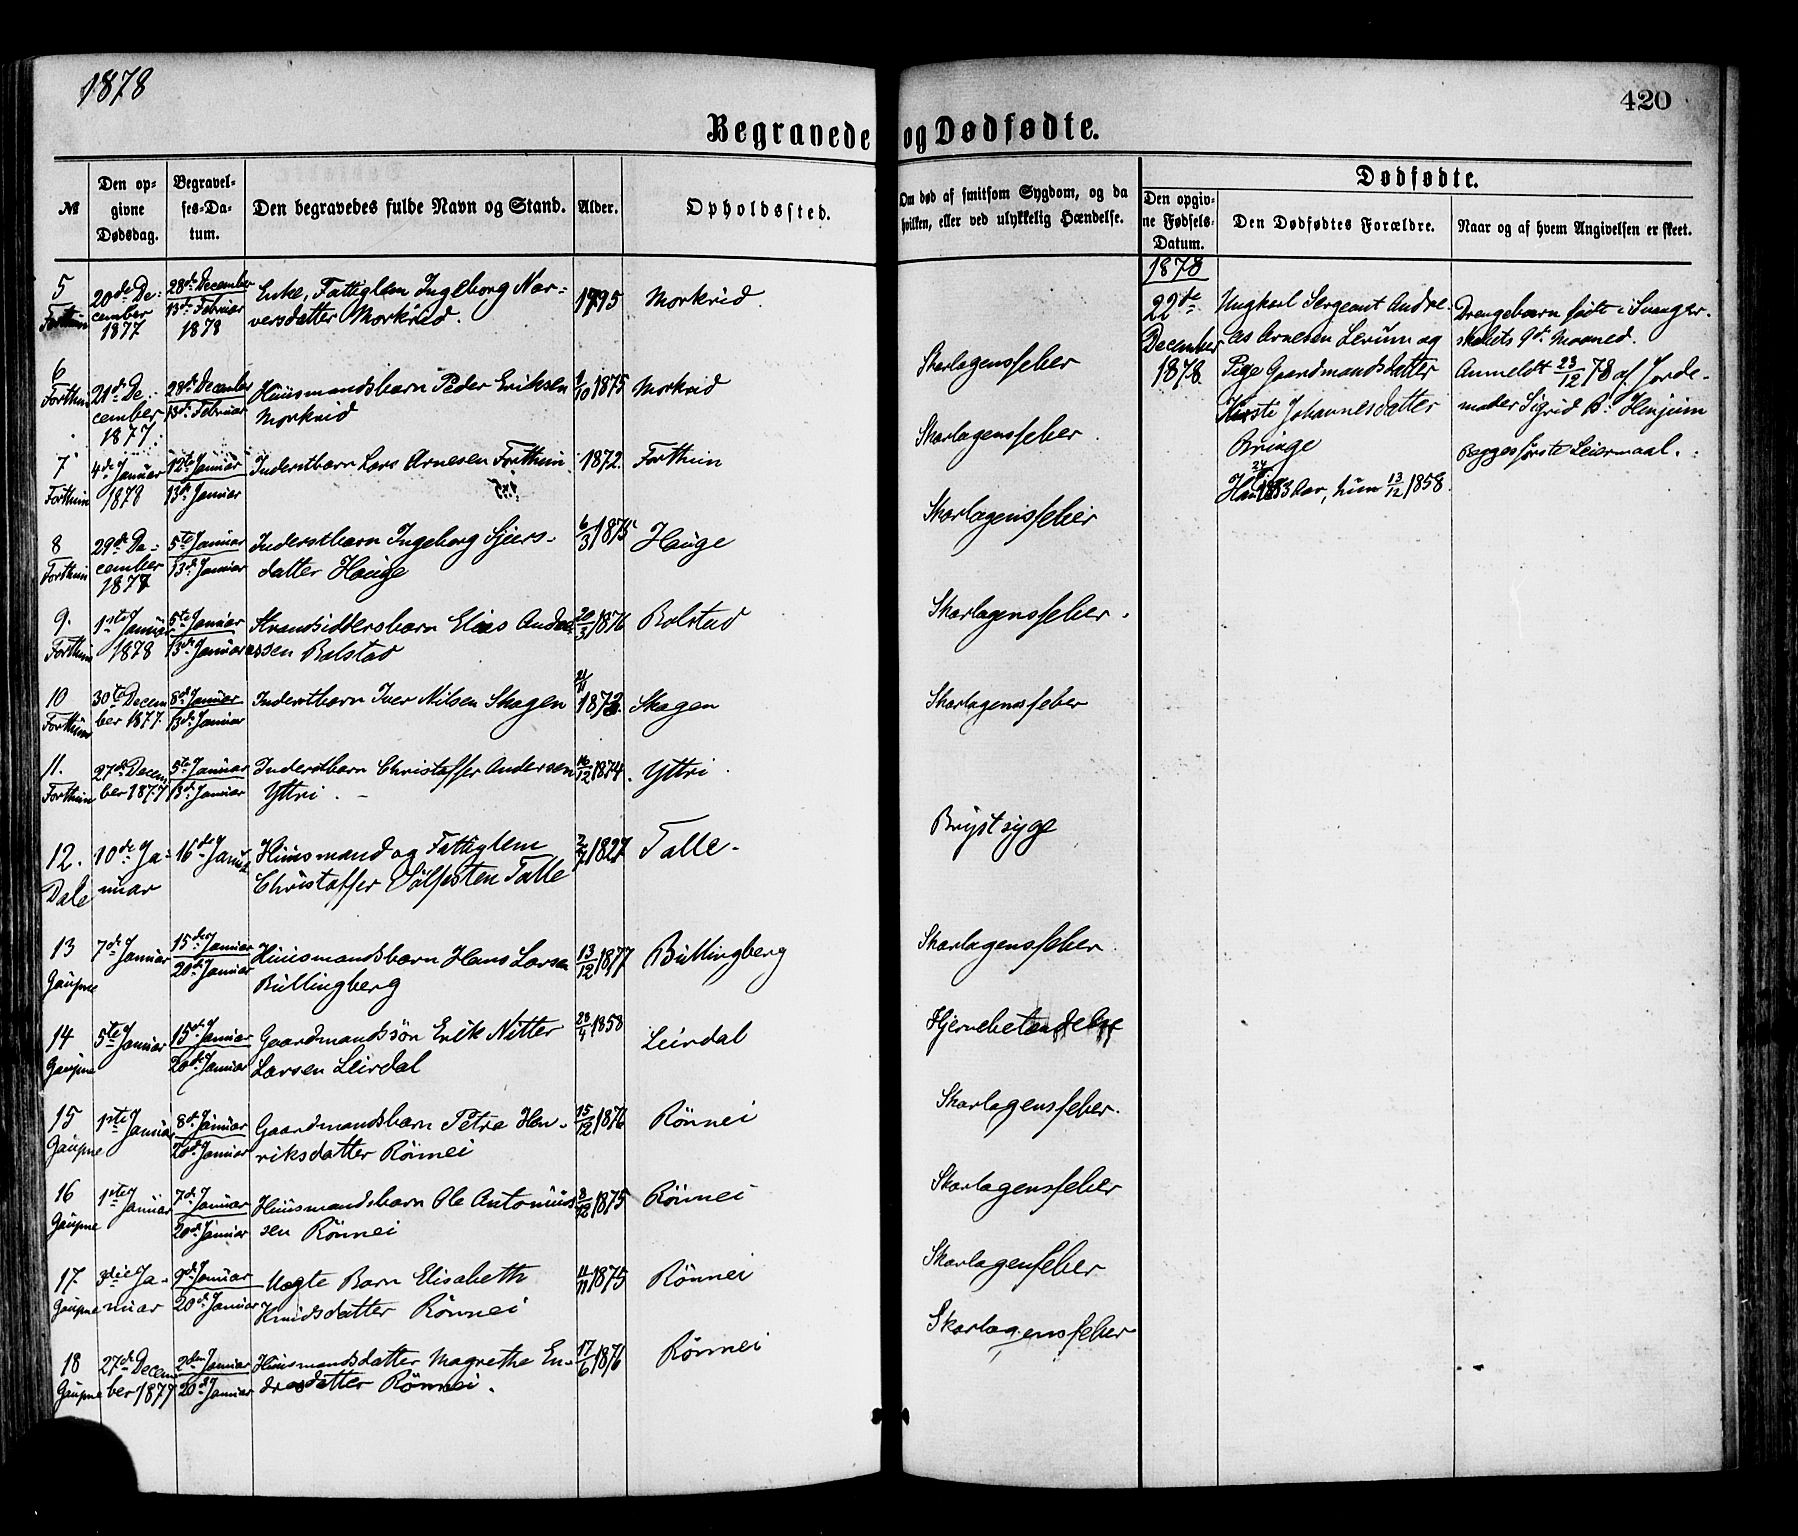 1878
420
Begravede og Dødfødte.
№
Den opgivne Dødsdag.
Begravelses-Datum.
Den begravedes fulde Navn og Stand.
Alder.
Opholdssted.
Om død af smitsom Sygdom, og da hvilken, eller ved ulykkelig Hændelse.
Dødfødte.
Den opgivne Fødsels-Datum.
Den Dødfødtes Forældre.
Naar og af hvem Angivelsen er skeet.
5 20de De- 28de December Enke, Fattiglem Ingeborg Nar- 1795 Morkrid.
Forthun cember 13de Februar versdatter Morkrid.
1877 1878
6 21de De- 28de December Huusmandsbarn Peder Eriksen 1/10 1875 Morkrid Skarlagensfeber
Forthun cember 13de Februar Morkrid
1877.
7 4de Januar 12te Januar Inderstbarn Lars Arnesen Forthun. 1872. Forthun Skarlagensfeber.
Forthun 1878 13de Januar
8 29de De- 5te Januar Inderstbarn Ingeborg Sjurs- 6/3 1875 Hauge Skarlagensfeber
Forthun cember 13de Januar datter Hauge
1877
9. 1ste Januar 5te Januar Strandsiddersbarn Elias Andrea- 20/3 1876 Bolstad Skarlagensfeber.
Forthun 1878 13de Januar ssen Bolstad
10 30te Decem 8de Januar Inderstbarn Iver Nilsen Skagen 1873. Skagen Skarlagensfeber
Forthun ber 1877 13de Januar
11. 27de Decem 5te Januar Inderstbarn Christoffer Andersen 16/12 1874. Yttri.
Forthun ber 1877 13de Januar Yttri.
12. 10de Ja- 16de Januar Huusmand og Fattiglem 2/7 1827 Talle. Brystsyge
Dale nuar Christoffer Sølfesten Talle
13 7de Januar 15de Januar Huusmandsbarn Hans Larsen 13/12 1877 Bullingberg Skarlagensfeber.
Gaupne 20de Januar Bullingberg
14 5te Januar 15de Januar Gaardmandssøn Erik Nitter 23/4 1858 Leirdal Hjernebetændelse
Gaupne 20de Januar Larsen Leirdal
15 1ste Januar 8de Januar Gaardmandsbarn Petra Hen- 15/12 1876 Rønnei Skarlagensfeber.
Gaupne 20de Januar riksdatter Rønnei
16 1ste Januar 7de Januar Huusmandsbarn Ole Antonius 3/12 1875 Rønnei Skarlagensfeber
Gaupne 20de Januar sen Rønnei
17 3die Ja- 9de Januar Uægte Barn Elisabeth 11/11 1875 Rønnei Skarlagenfeber
Gaupne nuar 20de Januar Knudsdatter Rønnei
18 27de Decem 2den Januar Huusmandsdatter Magrethe En- 17/6 1876 Rønnei Skarlagensfeber
Gaupne ber 1877 20de Januar dresdatter Rønnei.
1878
22de Ungkarl Sergeant Andre- Drengebarn født i Svanger-
December as Arnesen Lerum og skabets 9de Maaned.
1878 Pige Gaardmandsdatter Anmeldt 23/12 78 af Jorde-
Kirsti Johannesdatter moder Sigrid B. Hinjum
Bringe Begges første Leiermaal.
Han Aar, hun 13/12 1858.